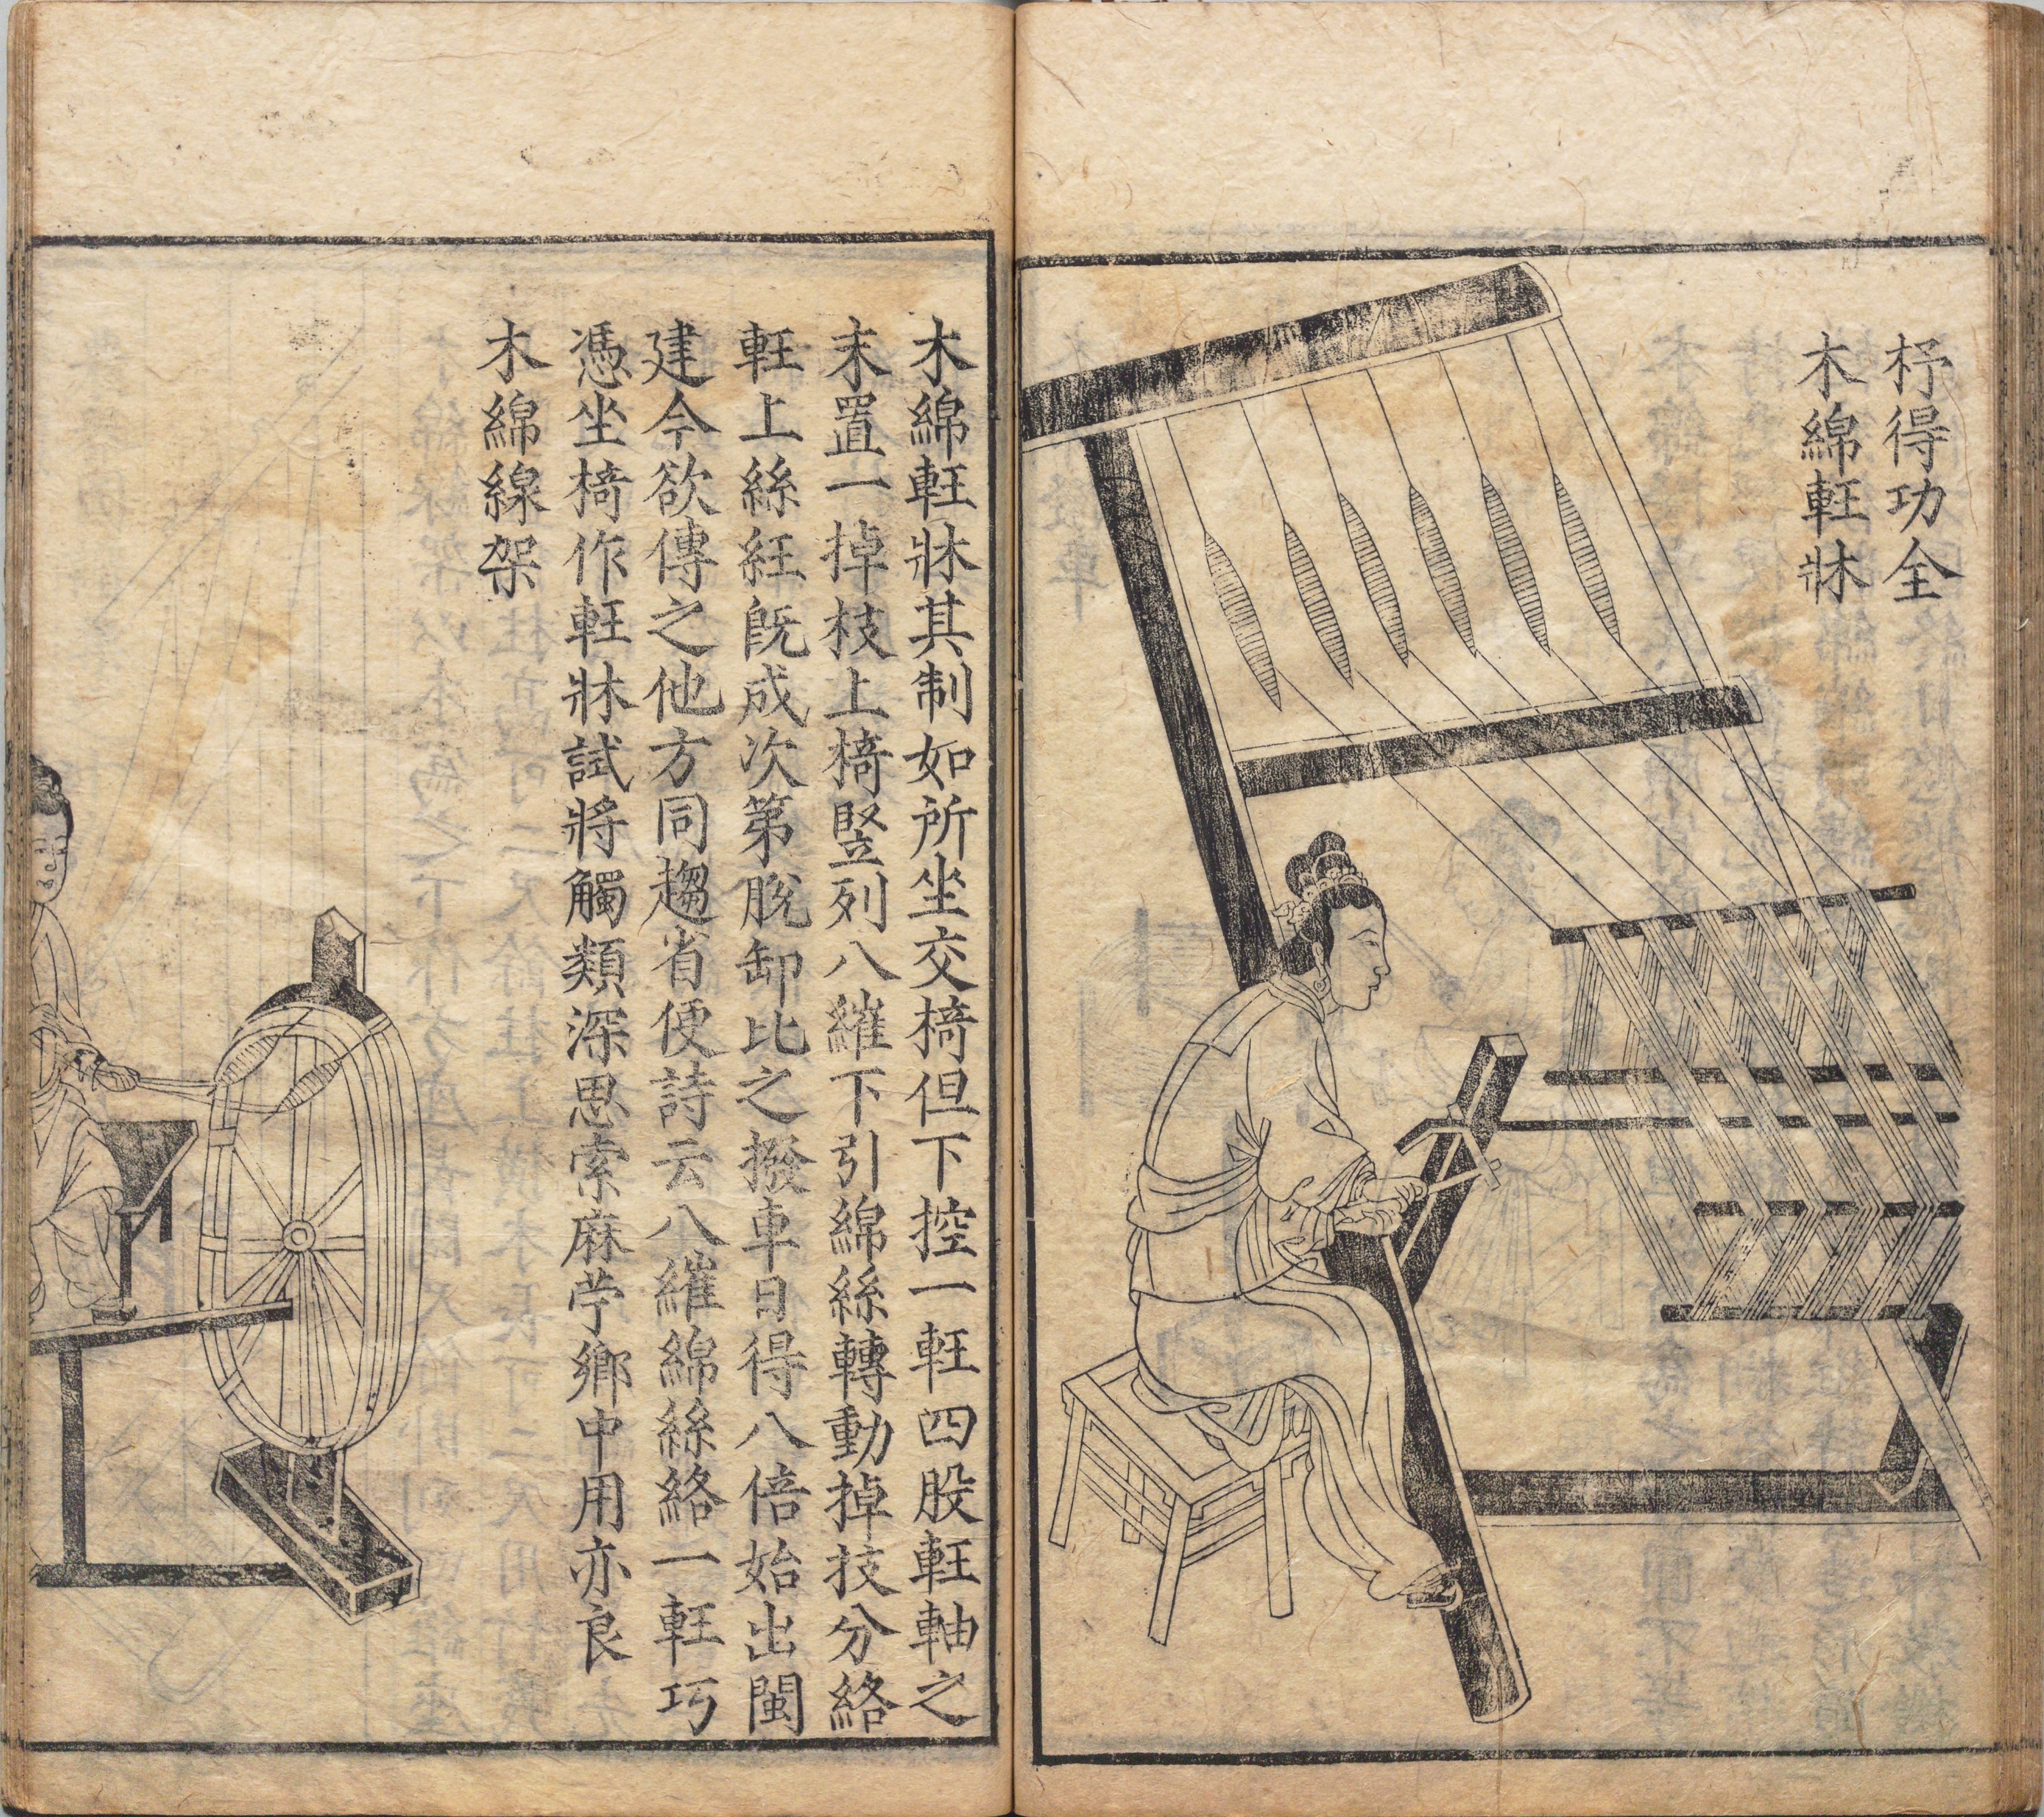 杼得功全
木綿軠牀
木綿軠牀其制如所坐交椅但下控一軠四股軠軸之
末置一掉枝上椅竪列八繀下引綿絲轉動掉技分絡
軠上絲紝旣成次第脫卸比之撥車日得八倍始出閩
建今欲傳之他方同趨省便詩云八繀綿絲絡一軠巧
憑坐椅作軠牀試將觸類深思索麻苧鄉中用亦良
木綿線架